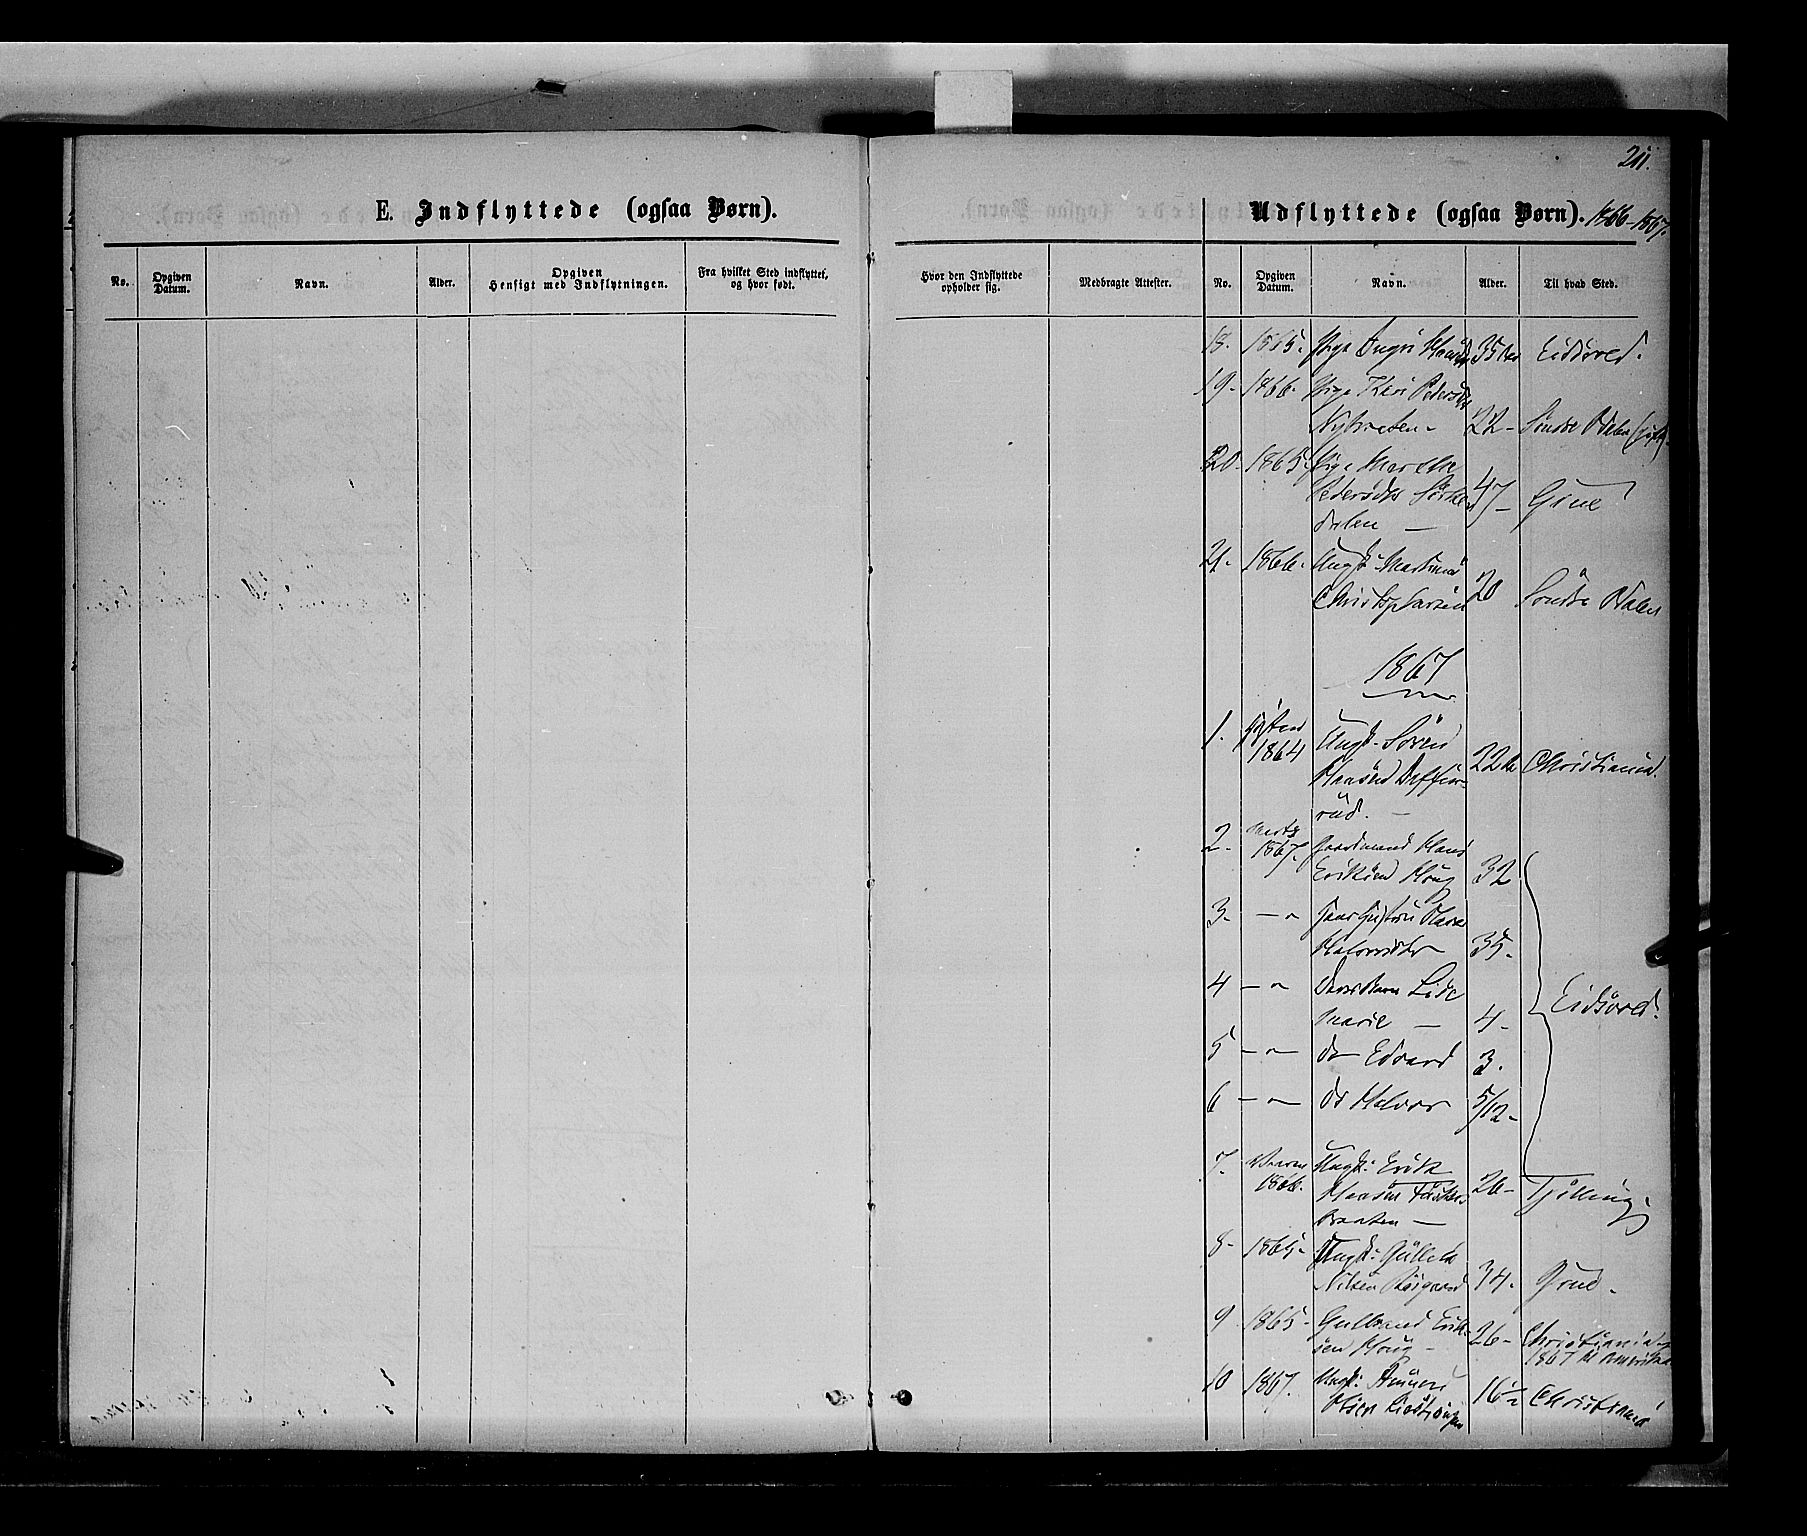 211.
E. Indflyttede (ogsaa Børn).
Udflyttede (ogsaa Børn). 1866-1867.
No.
Opgiven Datum.
Navn.
Alder.
Opgiven Hensigt med Indflytningen.
Fra hvilket Sted indflyttet, og hvor født.
Hvor den Indflyttede opholder sig.
Medbragte Attester.
No.
Opgiven Datum.
Navn.
Alder.
Til hvad Sted.
18. 1865. Pige Ingri 35 Eidsvold.
19. 1866. Pige Kari Pedersdtr
Nybraaten 22 Søndre Odalen
20. 1865. Pige Marthe
Pedersdtr 47 Grue
dalen
21. 1866. Ungk.
Christophersen 20 Søndre Odalen
1867
1. Høsten 1864 Ungk. Søren
Hansen 22 Christiania.
rud.
2. 1867. Gaardmand Hans
Eriksen Houg 32
3. Maren
Halvorsdtr 35.
4 Deres Barn Lise
Marie 4
Eidsvold.
5 do Edvard 3.
6 do Halvor 5/12
7. Vaaren 1866. Ungk. Erik
Hansen 26 Tjølling
braaten
8 1865 Ungk. Gullik
Nilsen 34. Grue.
9 1865 Gulbrand Erik-
sen Houg 26 Christiania
1867 til Amerika
10 1867. Ungk.
Olsen 16½ Christiania